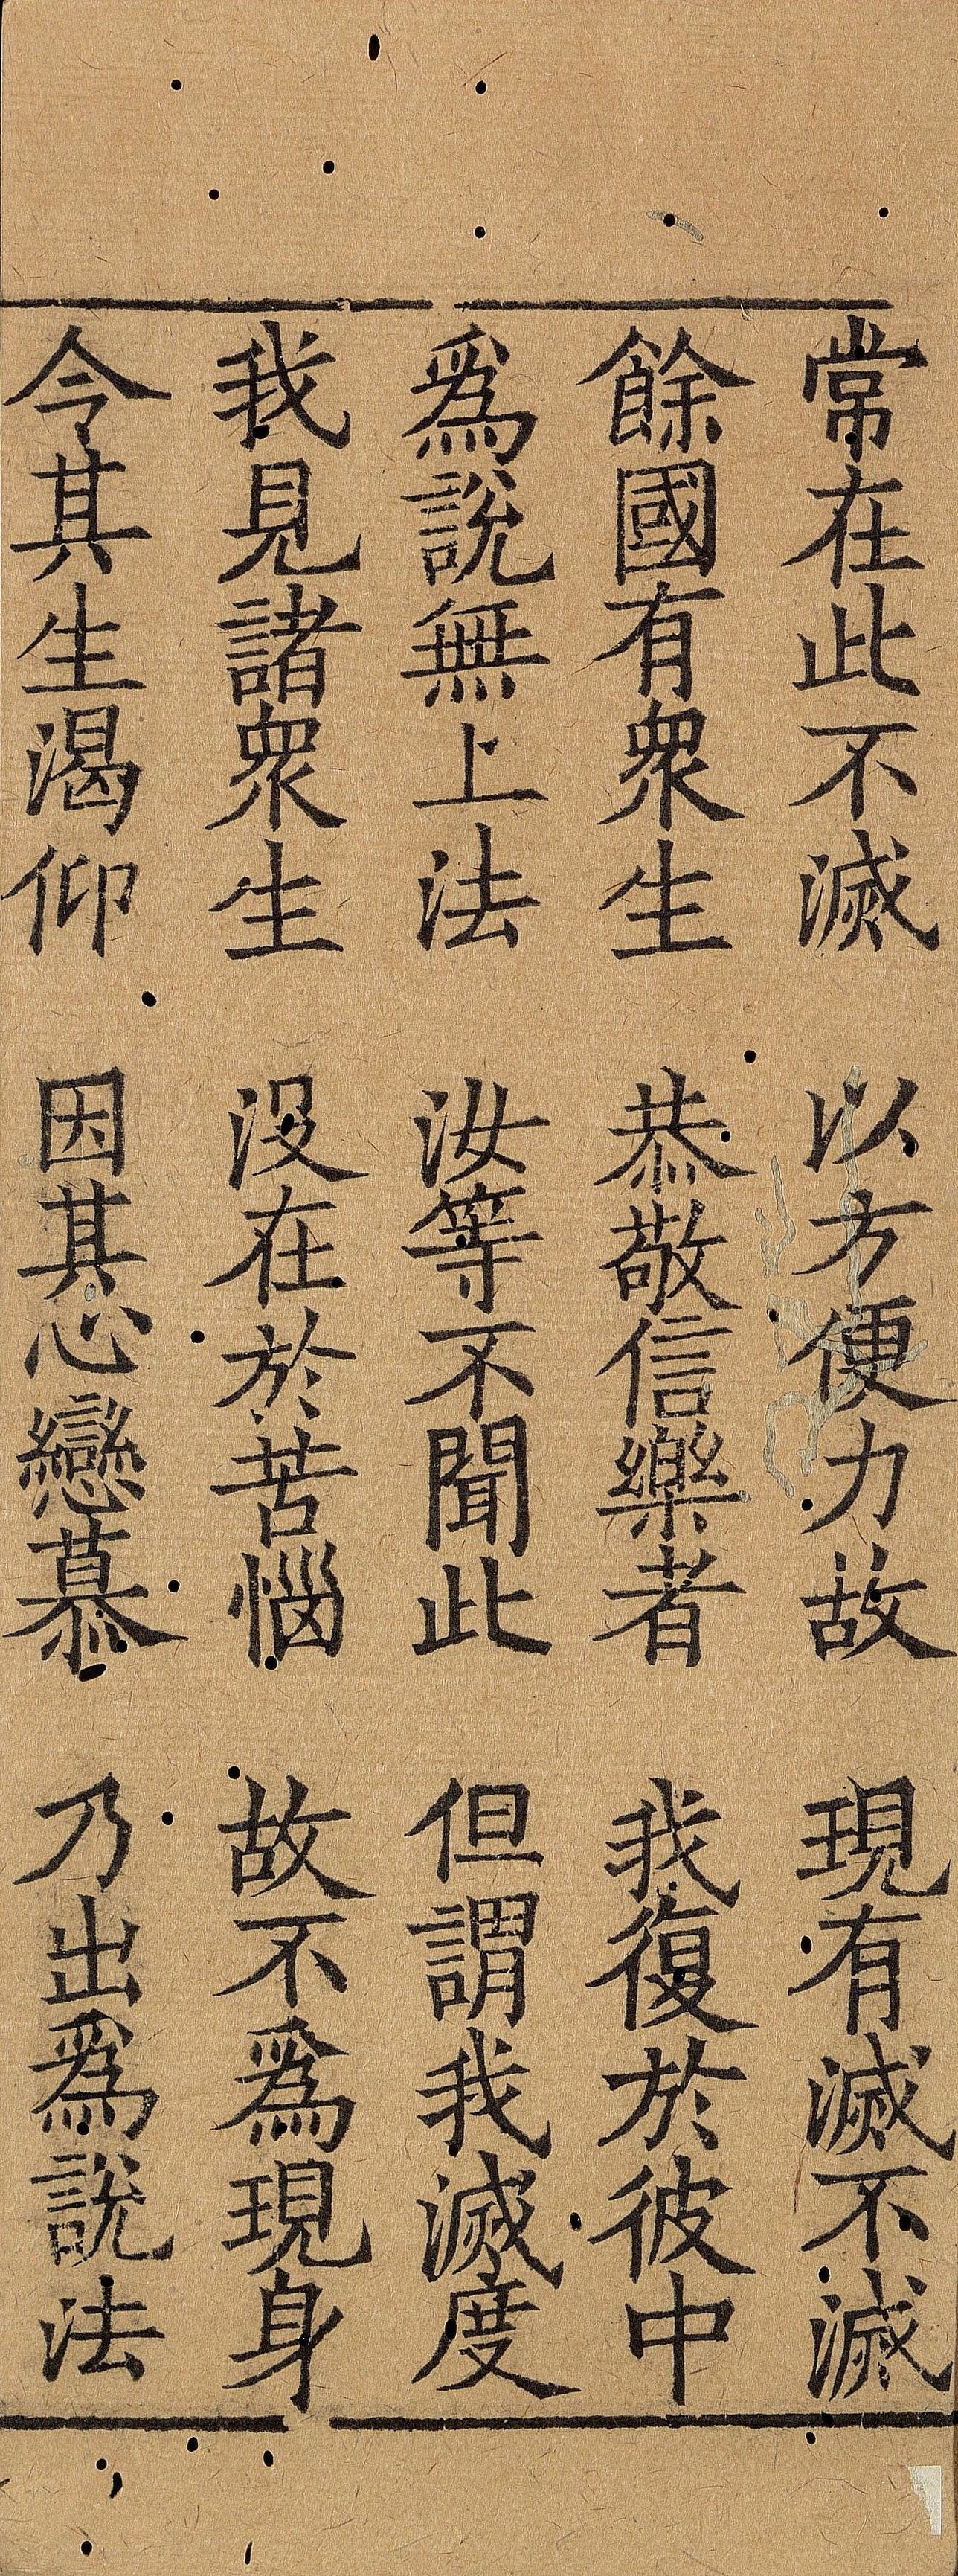 常在此不滅 以方便力故 現有滅不滅
餘國有衆生 恭敬信樂者 我復於彼中
爲說無上法 汝等不聞此 但謂我滅度
我見諸衆生 没在於苦惱 故不爲現身
令其生渴仰 因其心戀慕 乃出爲說法